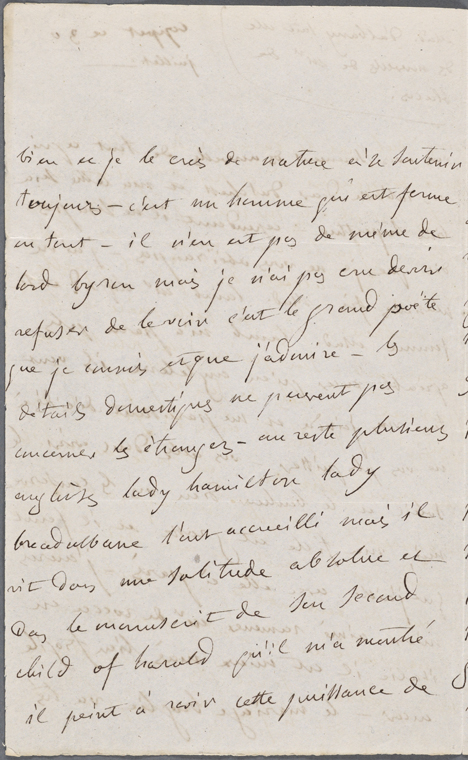 bien et je le crois de nature à se soutenir
toujours – c'est un homme qui est ferme
en tout – il n'en est pas de même de
lord byron mais je n'ai pas cru devoir
refuser de le voir c'est le grand poëte
que je connois et que j'admire – les
détails domestiques ne peuvent pas
concerner les étrangers – au reste plusieurs
angloises lady hamilton lady
breadalbane l'ont accueilli mais il
vit dans une solitude absolue et
dans le manuscrit de son second
child of harold qu'il m'a montré
il peint à ravir cette puissance de